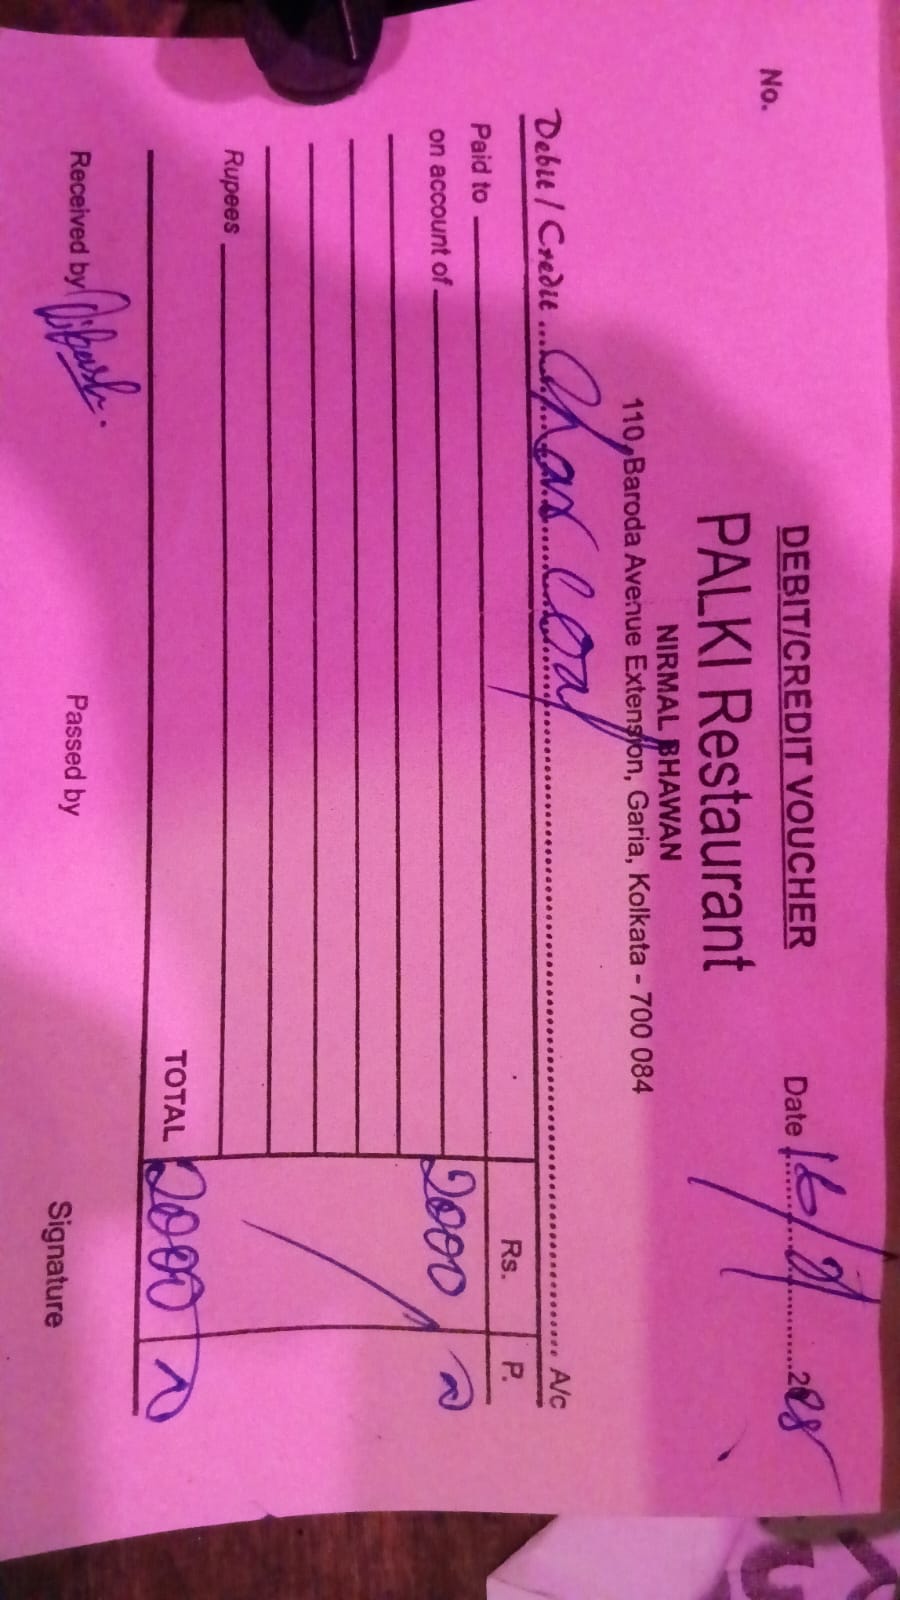 DEBIT/CREDIT VOUCHER
No.
Date 16/9/ 2025
PALKI Restaurant
NIRMAL BHAWAN
110, Baroda Avenue Extension, Garia, Kolkata - 700 084
Debit / Credit Char Coal A/c
Rs. P.
Paid to
on account of 2000
Rupees
TOTAL 2000
Received by
Passed by
Signature